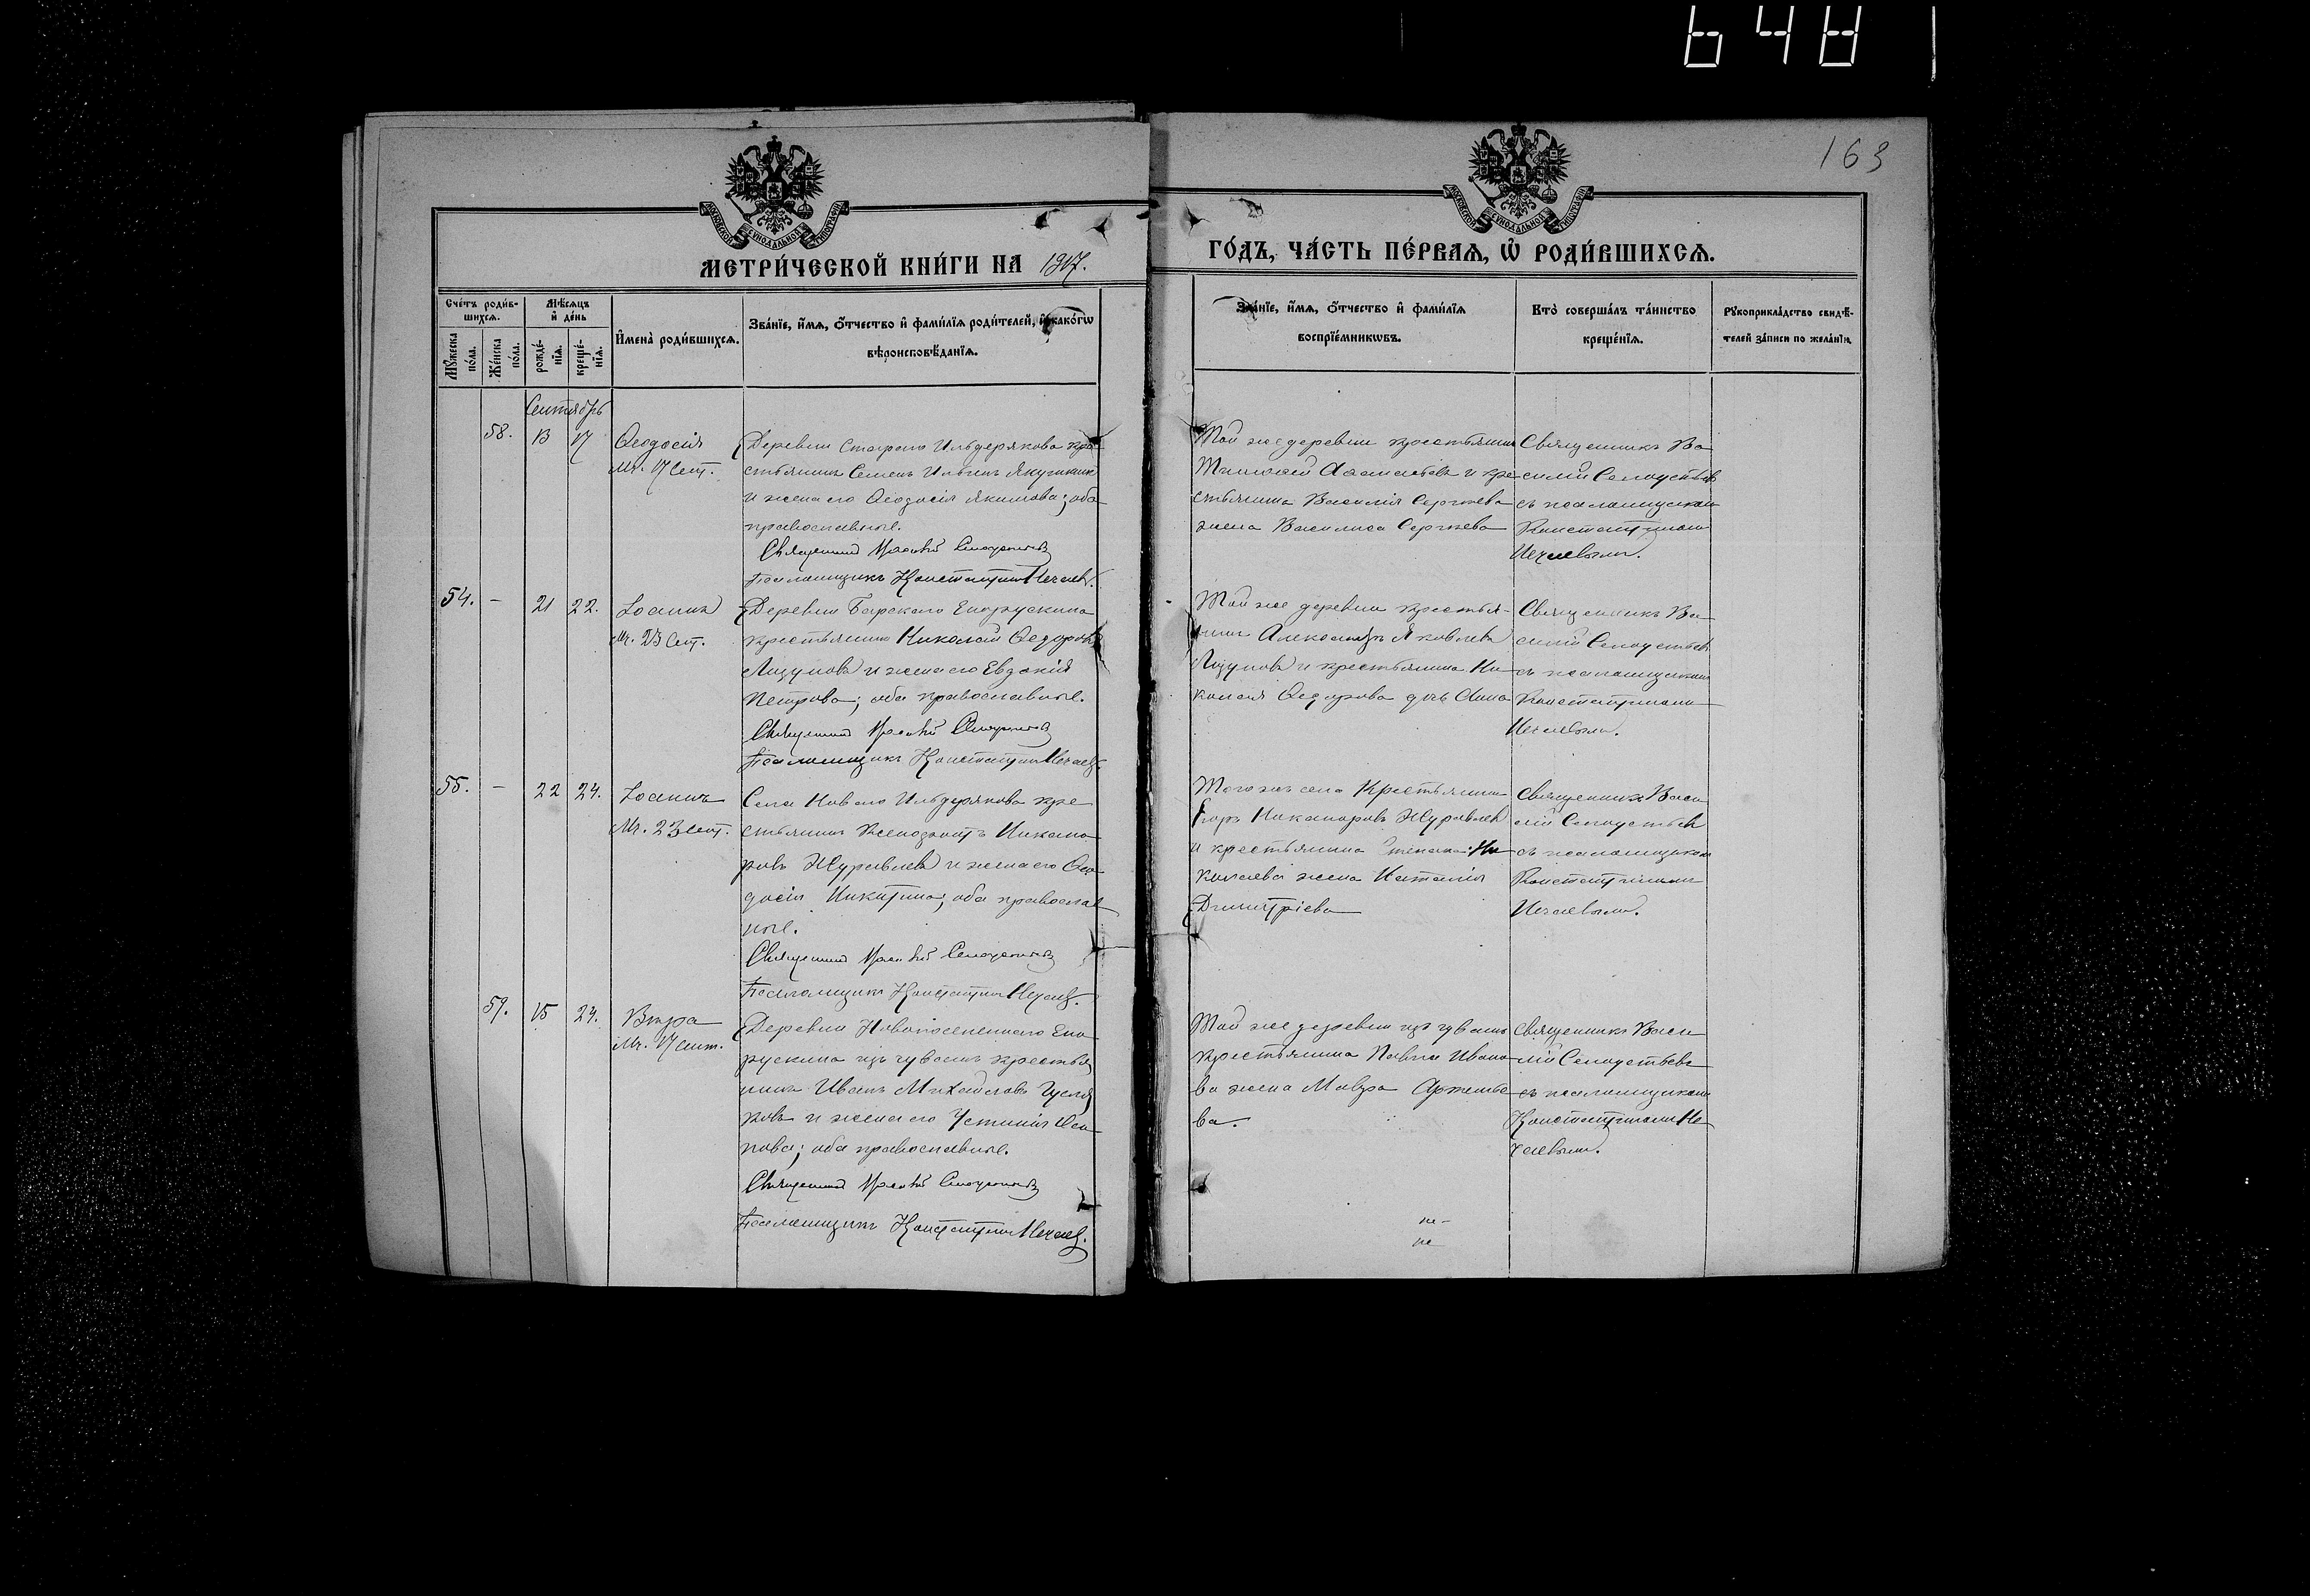 648
163
МОСКОВСКОЙ СѴНОДАЛЬНОЙ ТИПОГРАФІИ
МОСКОВСКОЙ СѴНОДАЛЬНОЙ ТИПОГРАФІИ
МЕТРИ́ЧЕСКОЙ КНИ́ГИ НА 1917.
ГО́ДЪ, ЧА́СТЬ ПЕ́РВАѦ, Ѡ҆ РОДИ́ВШИХСѦ.
Сче́тъ роди́в-
шихсѧ.
Мꙋ́жеска
по́ла.
Же́нска
по́ла.
Мѣ́сѧцъ
и҆ де́нь
рожде́-
нїѧ.
креще́-
нїѧ.
И҆мена̀ роди́вшихсѧ.
Зва́нїе, и҆́мѧ, ѻ҆́тчество и҆ фами́лїѧ роди́телей, и҆ како́гѡ
вѣроисповѣ́данїѧ.
Зва́нїе, и҆́мѧ, ѻ҆́тчество и҆ фами́лїѧ
воспрїе́мникѡвъ.
Кто̀ соверша́лъ та́инство
креще́нїѧ.
Рꙋкоприкла́дство свидѣ́-
телей за́писи по жела́нїю.
Сентябрь
58. 13 17
Ѳеодосія
Мч. 17 Сент.
Деревни Стараго Ильдерякова кре
стьянинъ Семенъ
и жена его Ѳеодосія Якимова; оба
православные.
Священникъ
Псаломщикъ Константинъ Нечаевъ.
Той же деревни крестьянинъ
и кре
стьянина Василія Сергѣева
жена Василиса Сергѣева
Священникъ Ва
силій
съ псаломщикомъ
Константиномъ
Нечаевымъ.
54. - 21 22.
Іоаннъ
Мч. 23 Сент.
Деревни Барскаго Енорускина
крестьянинъ Николай Ѳедоровъ
и жена его Евдокія
Петрова; оба православные.
Священникъ
Псаломщикъ Константинъ Нечаевъ.
Той же деревни крестья-
нинъ Александръ Яковлевъ
и крестьянина Ни
колая Ѳедорова дочь Анна
Священникъ Ва
силій
съ псаломщикомъ
Константиномъ
Нечаевымъ.
55. - 22 24.
Іоаннъ
Мч. 23 Сент.
Села Новаго Ильдерякова кре
стьянинъ Ксенофонтъ Никано
ровъ Журавлевъ и жена его Ѳео
досія Никитина; оба православ
ные.
Священникъ
Псаломщикъ Константинъ Нечаевъ.
Того же села Крестьянинъ
Егоръ Никаноровъ Журавлевъ
и крестьянина Степана Ни
колаева жена Наталія
Димитріева
Священникъ Васи
лій
съ псаломщикомъ
Константиномъ
Нечаевымъ.
59. 15 24.
Вѣра
Мч. 17 Сент.
Деревни Новопоселеннаго Ено
рускина изъ чувашъ крестья
нинъ Иванъ Михайловъ
и жена его Устинія Оси
пова; оба православные.
Священникъ
Псаломщикъ Константинъ Нечаевъ.
Той же деревни изъ чувашъ
крестьянина Павла Ивано
ва жена Мавра Артемье
ва.
Священникъ Васи
лій
съ псаломщикомъ
Константиномъ Не
чаевымъ.
не
не